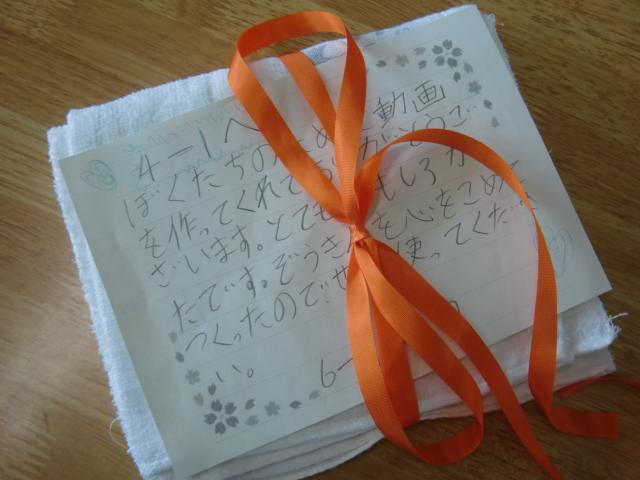 4-1へ
ぼくたちのために動画
を作ってくれてありがとうご
ざいます。とてもおもしろかっ
たです。ぞうきんを心をこめて
つくったのでぜひ使ってくださ
い。
6-